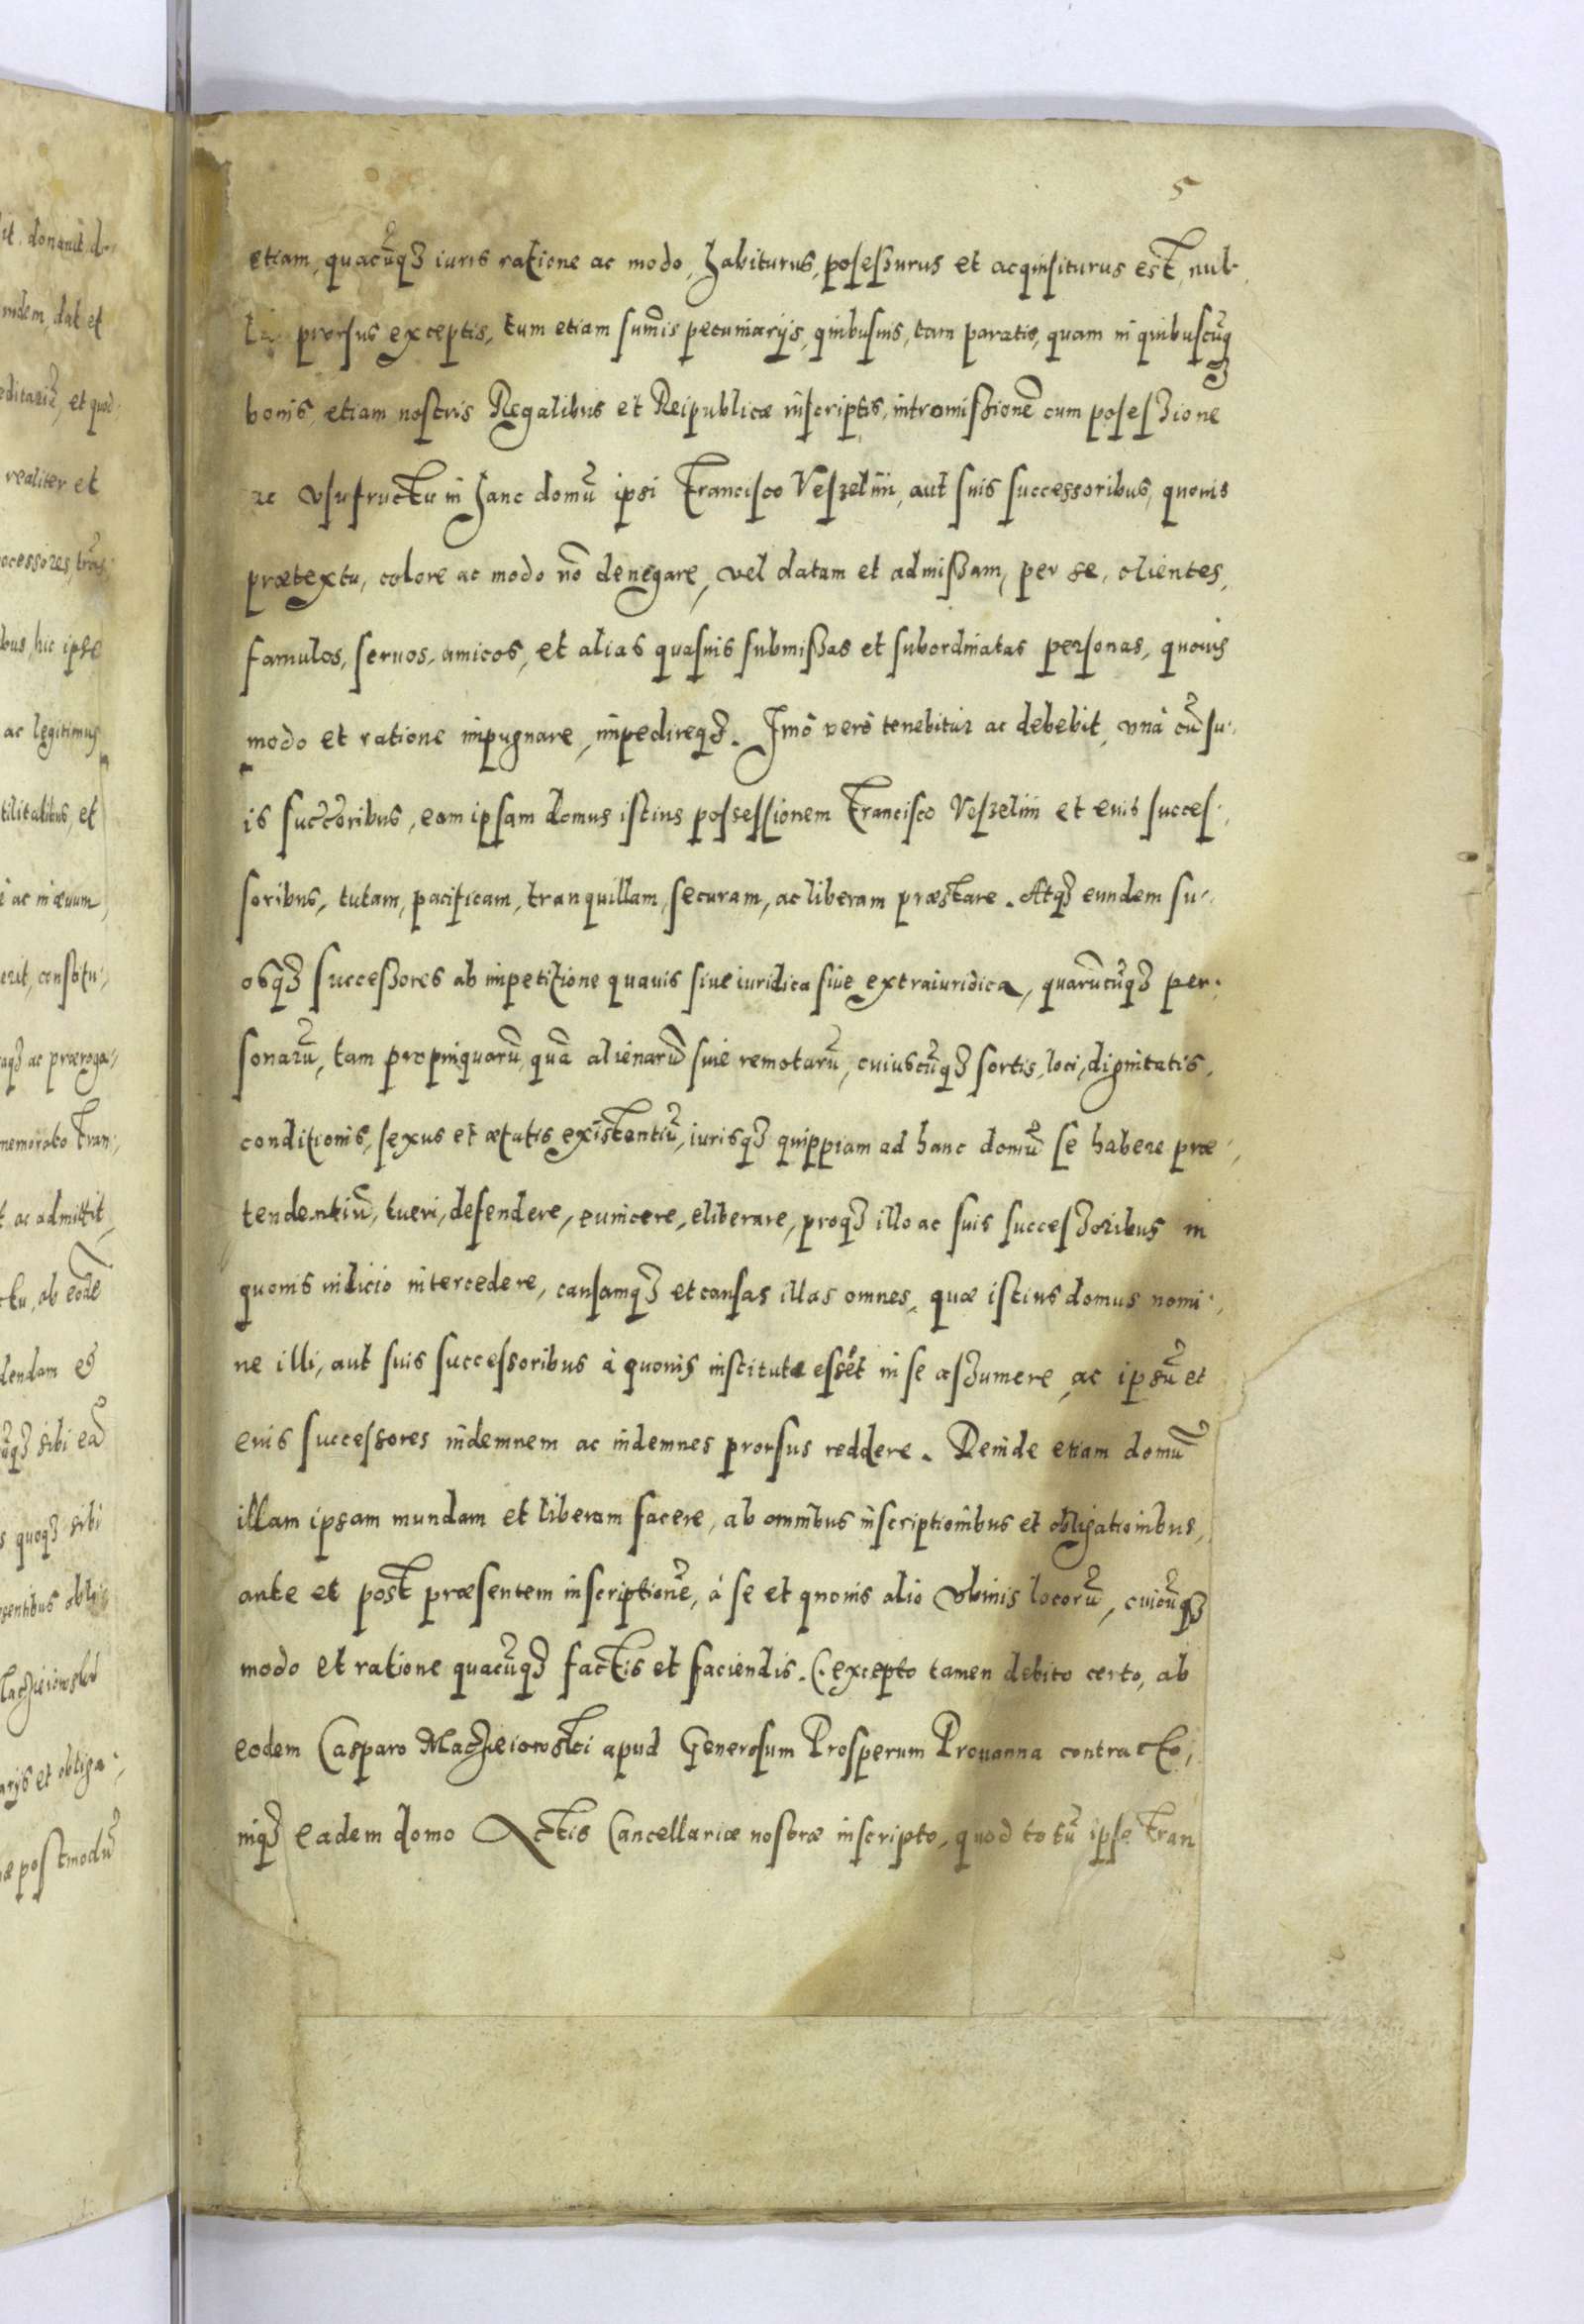 5
etiam, quacūq₃ iuris ratione ac modo, habiturus, poseſsurus et acquisiturus est, nul-
lis prorsus exceptis, tum etiam sum̄is pecuniarijs, quibusuis, tam paratis, quam in quibuscūq₃
bonis, etiam nostris Regalibus et Reipublicæ inscriptis, intromiſsionē cum poseſsione
ac vsufructu in hanc domū ipsi Francisco Veszelini, aut suis successoribus, quouis
prætextu, colore ac modo nō denegare, vel datam et admiſsam, per se, clientes,
famulos, seruos, amicos, et alias quasuis submiſsas et subordinatas personas, quouis
modo et ratione impugnare, impedireq₃. Imò verò tenebitur ac debebit, vnà cū su-
is succ̄oribus, eam ipsam domus istius possessionem Francisco Veszelini et eius succes-
soribus, tutam, pacificam, tranquillam, securam, ac liberam præstare. Atq₃ eundem su-
osq₃ succeſsores ab impetitione quauis siue iuridica siue extraiuridica, quarūcūq₃ per-
sonarū, tam propinquarū, quā alienarū siue remotarū, cuiuscūq₃ sortis, loci, dignitatis,
conditionis, sexus et ætatis existentiū, iurisq₃ quippiam ad hanc domū se habere præ-
tendentiū, tueri, defendere, euincere, eliberare, proq₃ illo ac suis succeſsoribus in
quouis iudicio intercedere, causamq₃ et causas illas omnes, quæ istius domus nomi-
ne illi, aut suis successoribus à quouis instituta essēt in se aſsumere, ac ipsū et
eius successores indemnem ac indemnes prorsus reddere. Deinde etiam domū
illam ipsam mundam et liberam facere, ab omnibus inscriptionibus et obligationibus,
ante et post præsentem inscriptionē, à se et quouis alio vbiuis locorū, cuicūq₃
modo et ratione quacūq₃ factis et faciendis. (excepto tamen debito certo, ab
eodem Casparo Maczieiowski apud Generosum Prosperum Prouanna contracto,
inq₃ eadem domo Actis Cancellariæ nostræ inscripto, quod totū ipse Fran